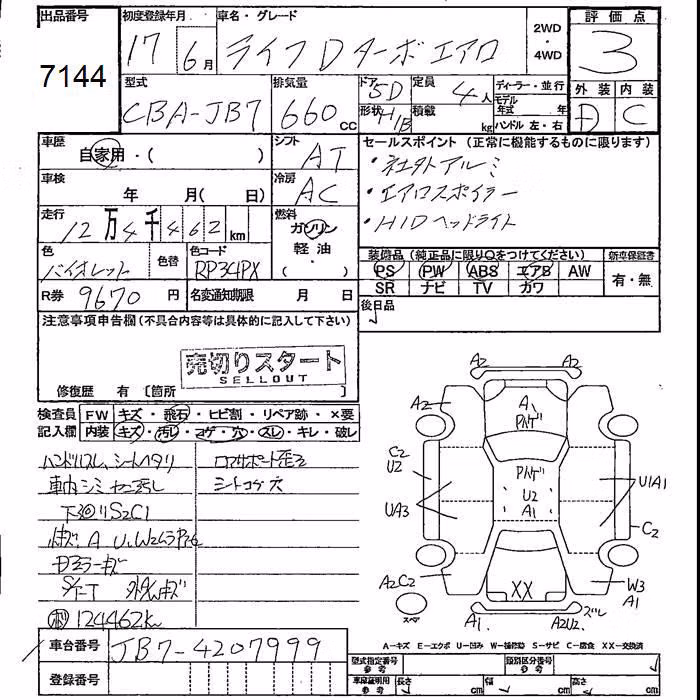 出品番号 初度登録年月 車名・グレード 2WD ・ 4WD 評価点
7144 17 6月 ライフDターボエアロ 3
型式 排気量 ドア 5D 定員 4人 ディーラー・並行 外装 内装
CBA-JB7 660cc 形状 H/B 積載 kg モデル年式 年 ハンドル 左・右 D C
車歴 自家用・( ) シフト AT セールスポイント (正常に機能するものに限ります)
・社外アルミ
車検 年 月( 日) 冷房 AC ・エアロスポイラー
走行 12万4千462km 燃料 ガソリン ・HIDヘッドライト
軽油・( )
色 バイオレット 色替 色コード RP34PX 装備品 (純正品に限り○をつけてください) 新車保証書
PS PW ABS エアB AW 有・無
SR ナビ TV カワ
R券 9670円 名変通知期限 月 日 後日品
注意事項申告欄(不具合内容等は具体的に記入して下さい)
売切りスタート
SELLOUT
修復歴 有 〔箇所 〕
検査員 FW キズ・飛石・ヒビ割・リペア跡・×要
記入欄 内装 キズ・汚レ・コゲ・穴・スレ・キレ・破レ
ハンドルスレ、シートヘタリ ロアサポート歪ミ
車内シミ 汚し シートコゲ穴
下廻りS2C1
A U、W2
ドアミラーキズ
124462km
A2 A2
A2 A1 A2
パンゲ
C2 U2 パンゲ U1A1
UA3 U2 A1 C2
A2C2 XX W3 A1
スペア A1 A2U2 ズレ
車台番号 JB7-4207999
A-キズ E-エクボ U-凹み W-補修跡 S-サビ C-腐食 XX-交換済
登録番号 型式指定番号 参考 類別区分番号 参考
車庫証明用 参考 長さ cm 幅 cm 高さ cm